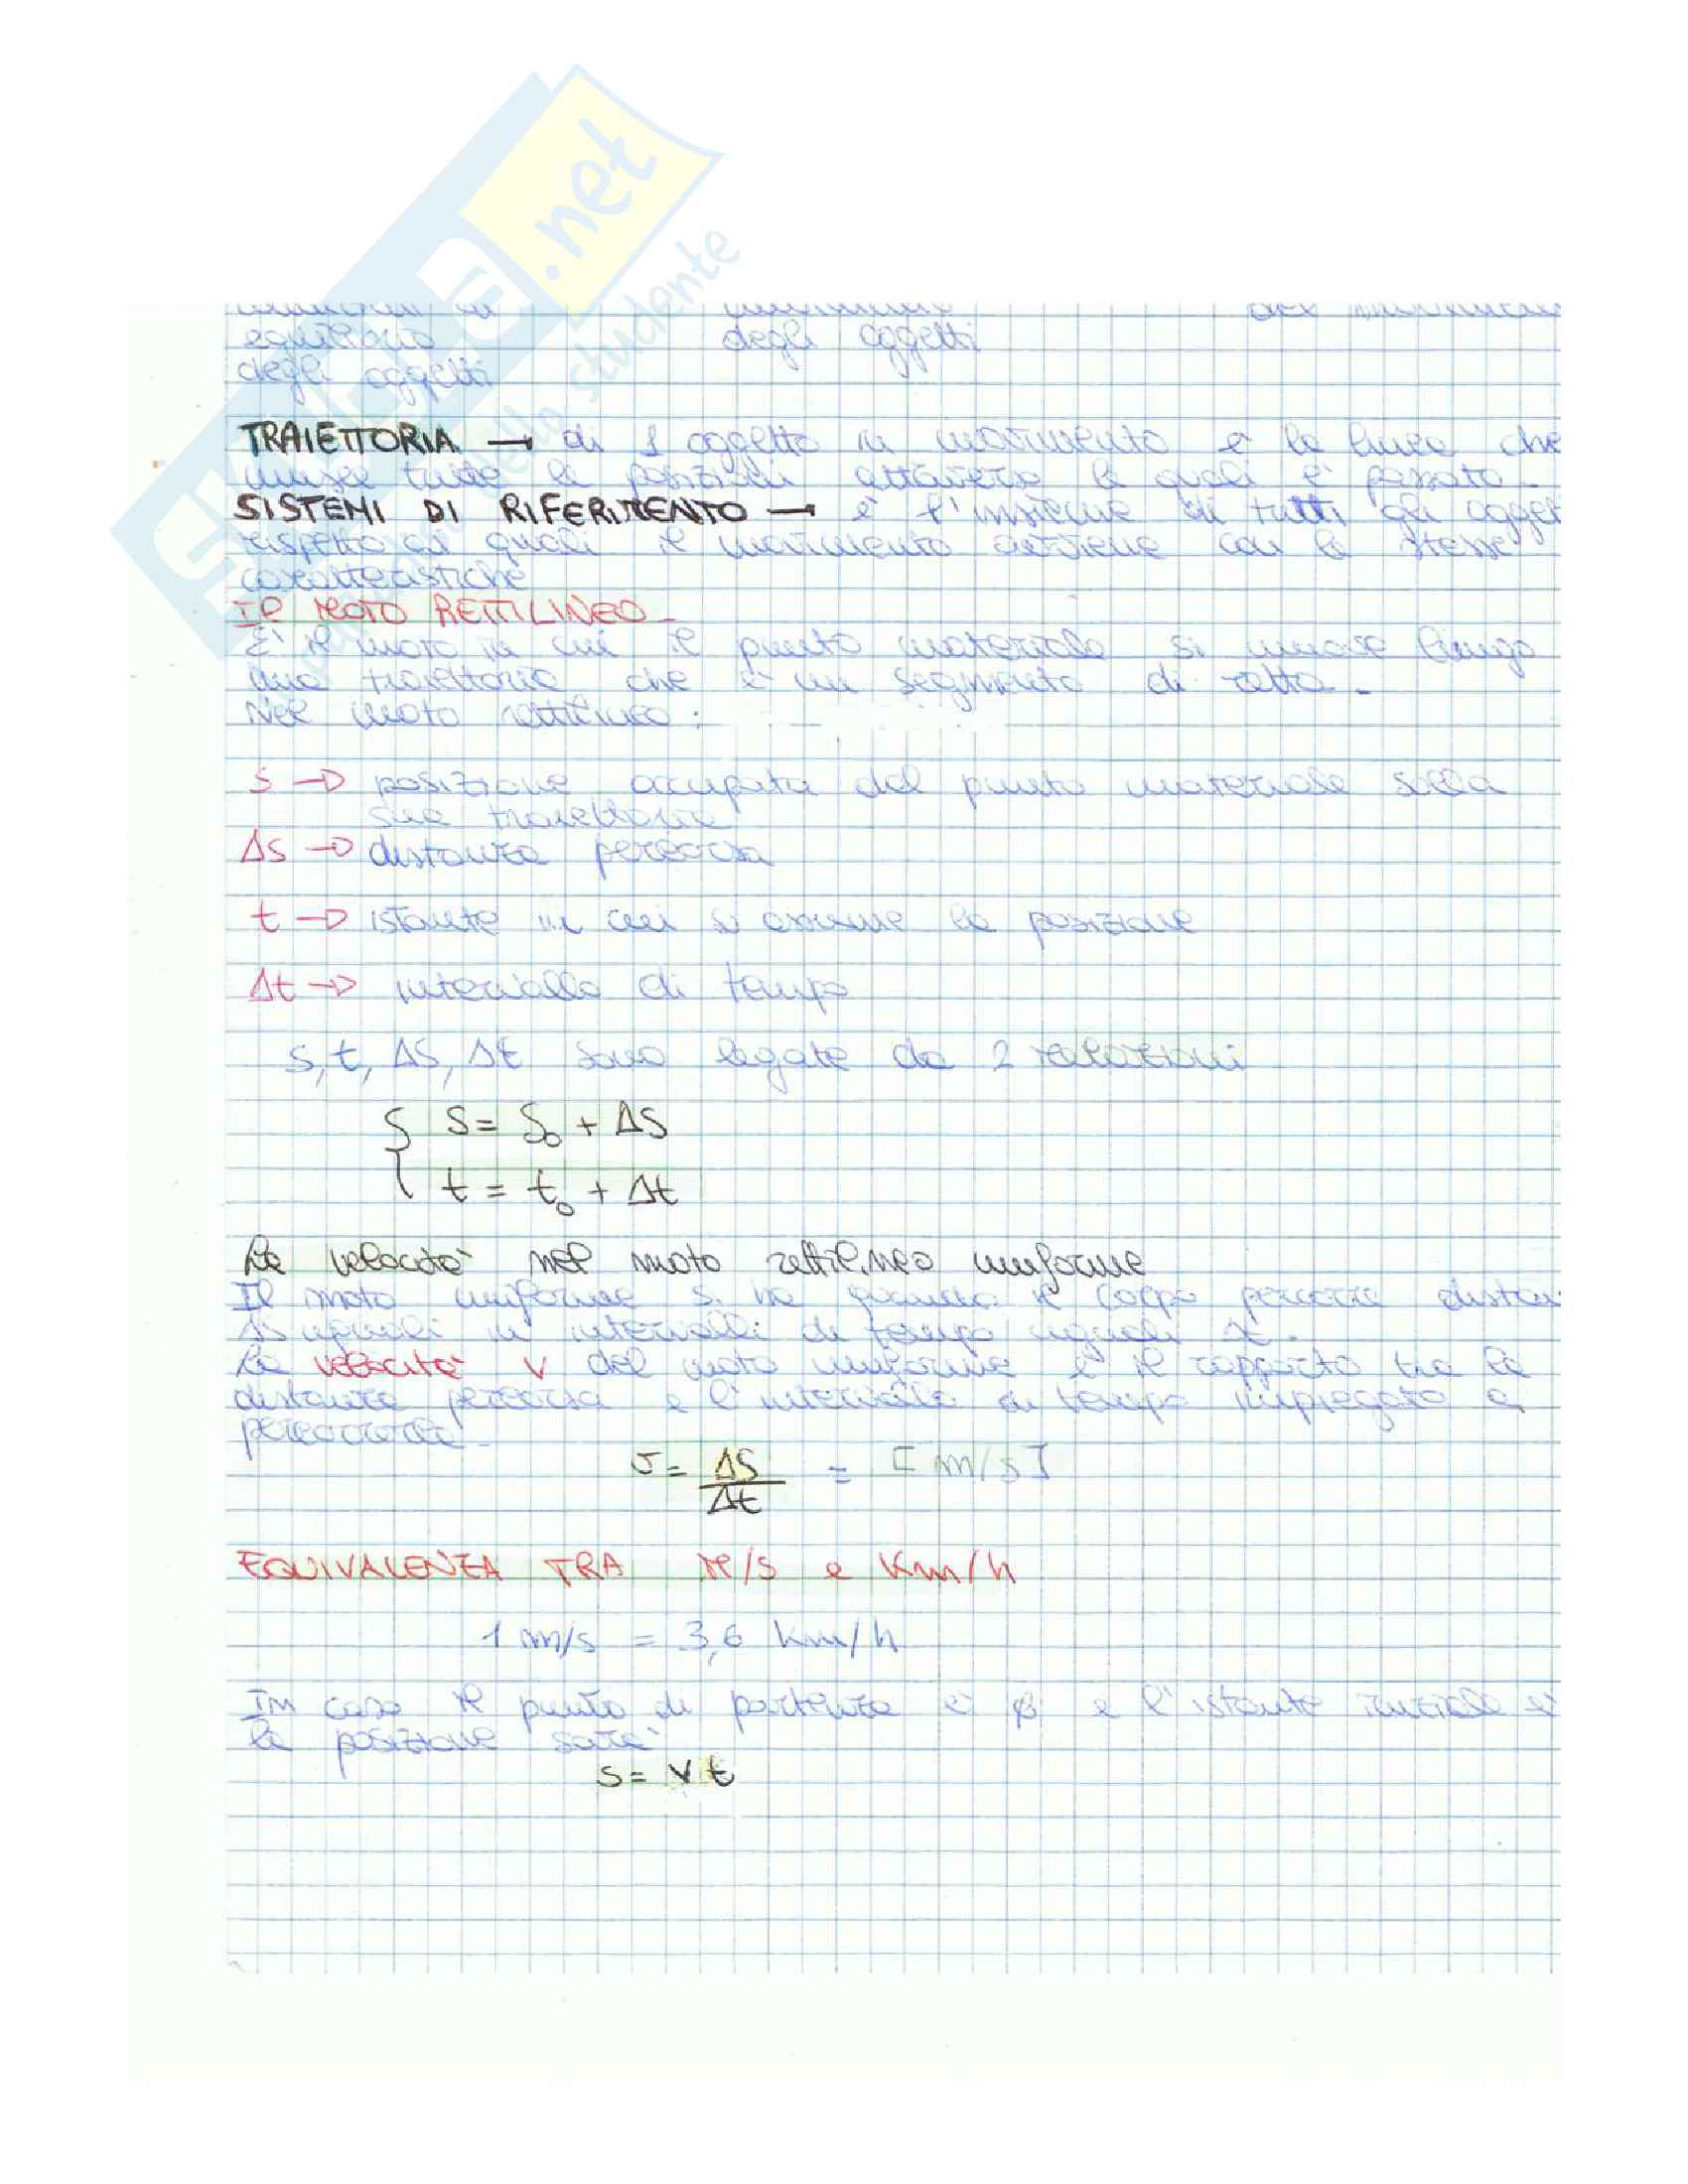 equilibrio degli oggetti
degli oggetti
TRAIETTORIA → di 1 oggetto in movimento è la linea che
unisce tutte le posizioni attraverso le quali è passato.
SISTEMI DI RIFERIMENTO → è l'insieme di tutti gli ogget
rispetto ai quali il movimento avviene con le stesse
caratteristiche
Il MOTO RETTILINEO
E' il moto in cui il punto materiale si muove lungo
una traiettoria che è un segmento di retta.
Nel moto rettilineo:
s → posizione occupata dal punto materiale sulla
sua traiettoria
Δs → distanza percorsa
t → istante in cui si assume la posizione
Δt → intervallo di tempo
s, t, Δs, Δt sono legate da 2 relazioni
{ s = s₀ + Δs
t = t₀ + Δt
La velocità nel moto rettilineo uniforme
Il moto uniforme si ha quando il corpo percorre distan
Δs uguali in intervalli di tempo uguali
La velocità v del moto uniforme è il rapporto tra la
distanza percorsa e l'intervallo di tempo impiegato a
percorrerla.
v = Δs/Δt = [m/s]
EQUIVALENZA TRA M/s e Km/h
1 m/s = 3,6 Km/h
In caso il punto di partenza è ø e l'istante iniziale è
la posizione sarà
s = v t
.net
dello studente